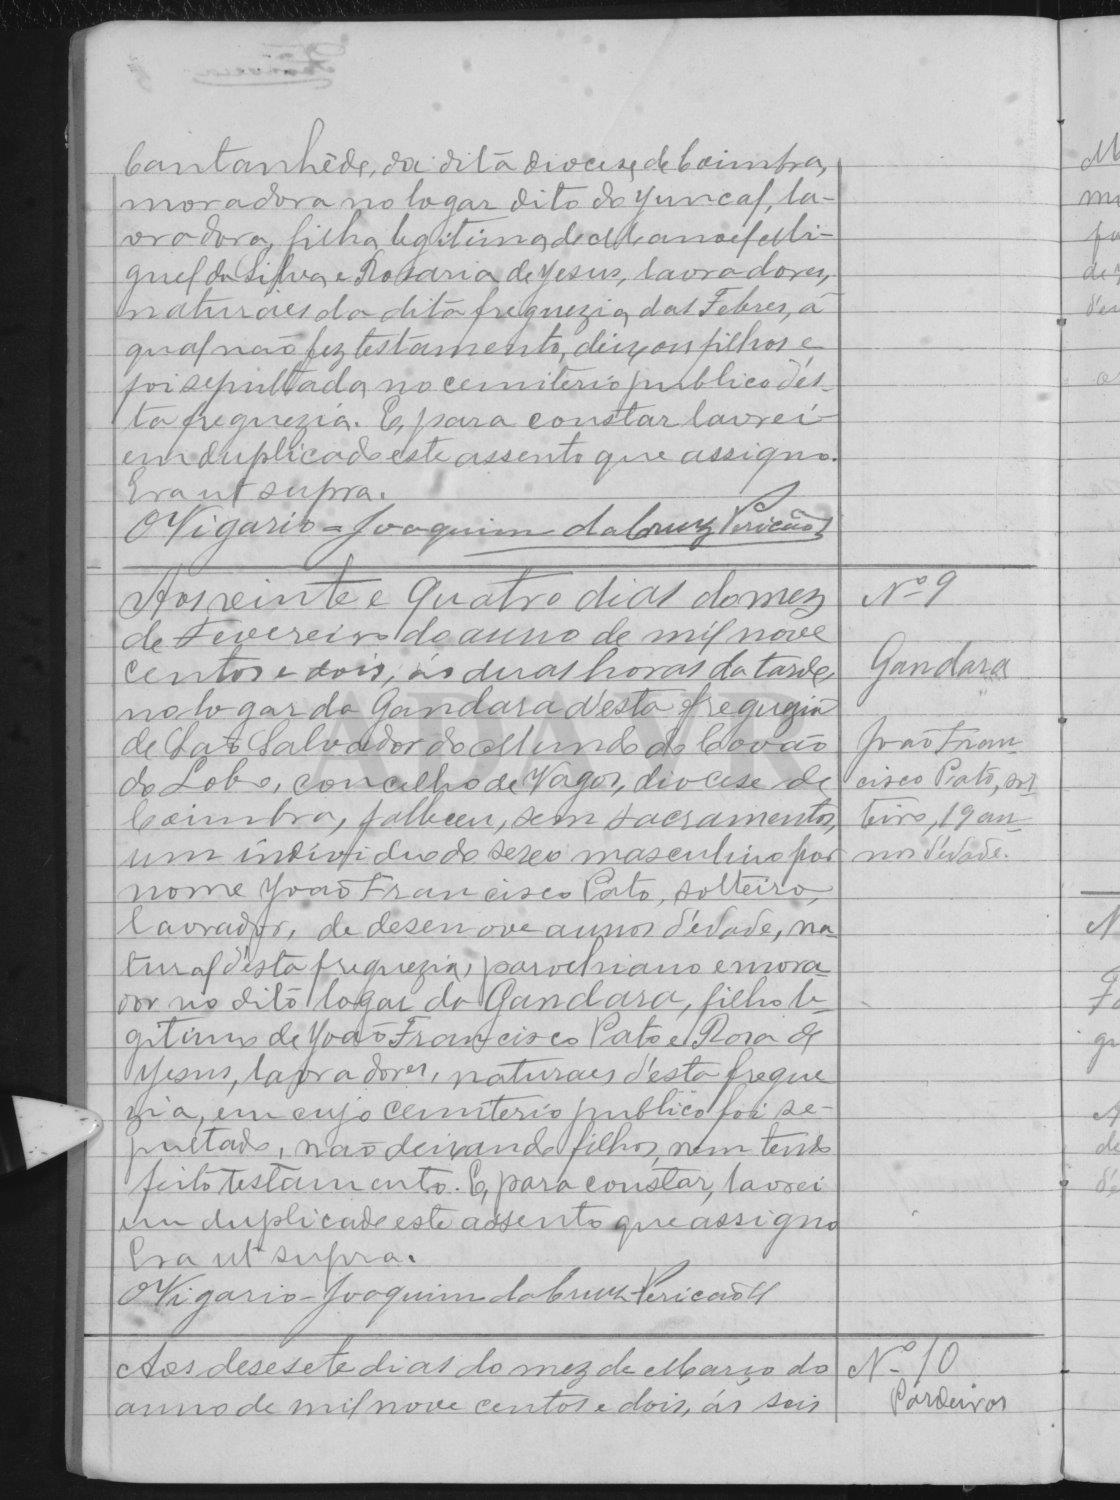 Cantanhêde, da dita diocese de Coimbra,
moradora no logar dito do Juncal, la-
vradora, filha legitima de Manoel Mi-
guel da Silva e Rosaria de Jesus, lavradores,
naturaes da dita freguezia das Febres, a
qual não fez testamento, deixou filhos e
foi sepultada no cemiterio publico d'es-
ta freguezia. E, para constar lavrei
em duplicado este assento que assigno.
Era ut supra.
O Vigario = Joaquim da Cruz Pericão
Aos veinte e quatro dias do mez
de Fevereiro do anno de mil nove
centos e dois, ás duas horas da tarde,
no logar da Gandara d'esta freguezia
de São Salvador do Mundo do Covão
do Lobo, concelho de Vagos, diocese de
Coimbra, falleceu, sem sacramentos,
um individuo do sexo masculino por
nome João Francisco Pato, solteiro,
lavrador, de desenove annos d'edade, na-
tural d'esta freguezia, parochiano e mora-
dor no dito logar da Gandara, filho le-
gitimo de João Francisco Pato e Rosa de
Jesus, lavradores, naturaes d'esta fregue
zia, em cujo cemiterio publico foi se-
pultado, não deixando filhos, nem tendo
feito testamento. E, para constar, lavrei
em duplicado este assento que assigno
Era ut supra.
O Vigario - Joaquim da Cruz Pericão
Aos desesete dias do mez de Março do
anno de mil nove centos e dois, ás seis
Nº 9
Gandara
João Fran-
cisco Pato, sol
teiro, 19 an-
nos d'edade.
Nº 10
Pardeiros
ADAVR